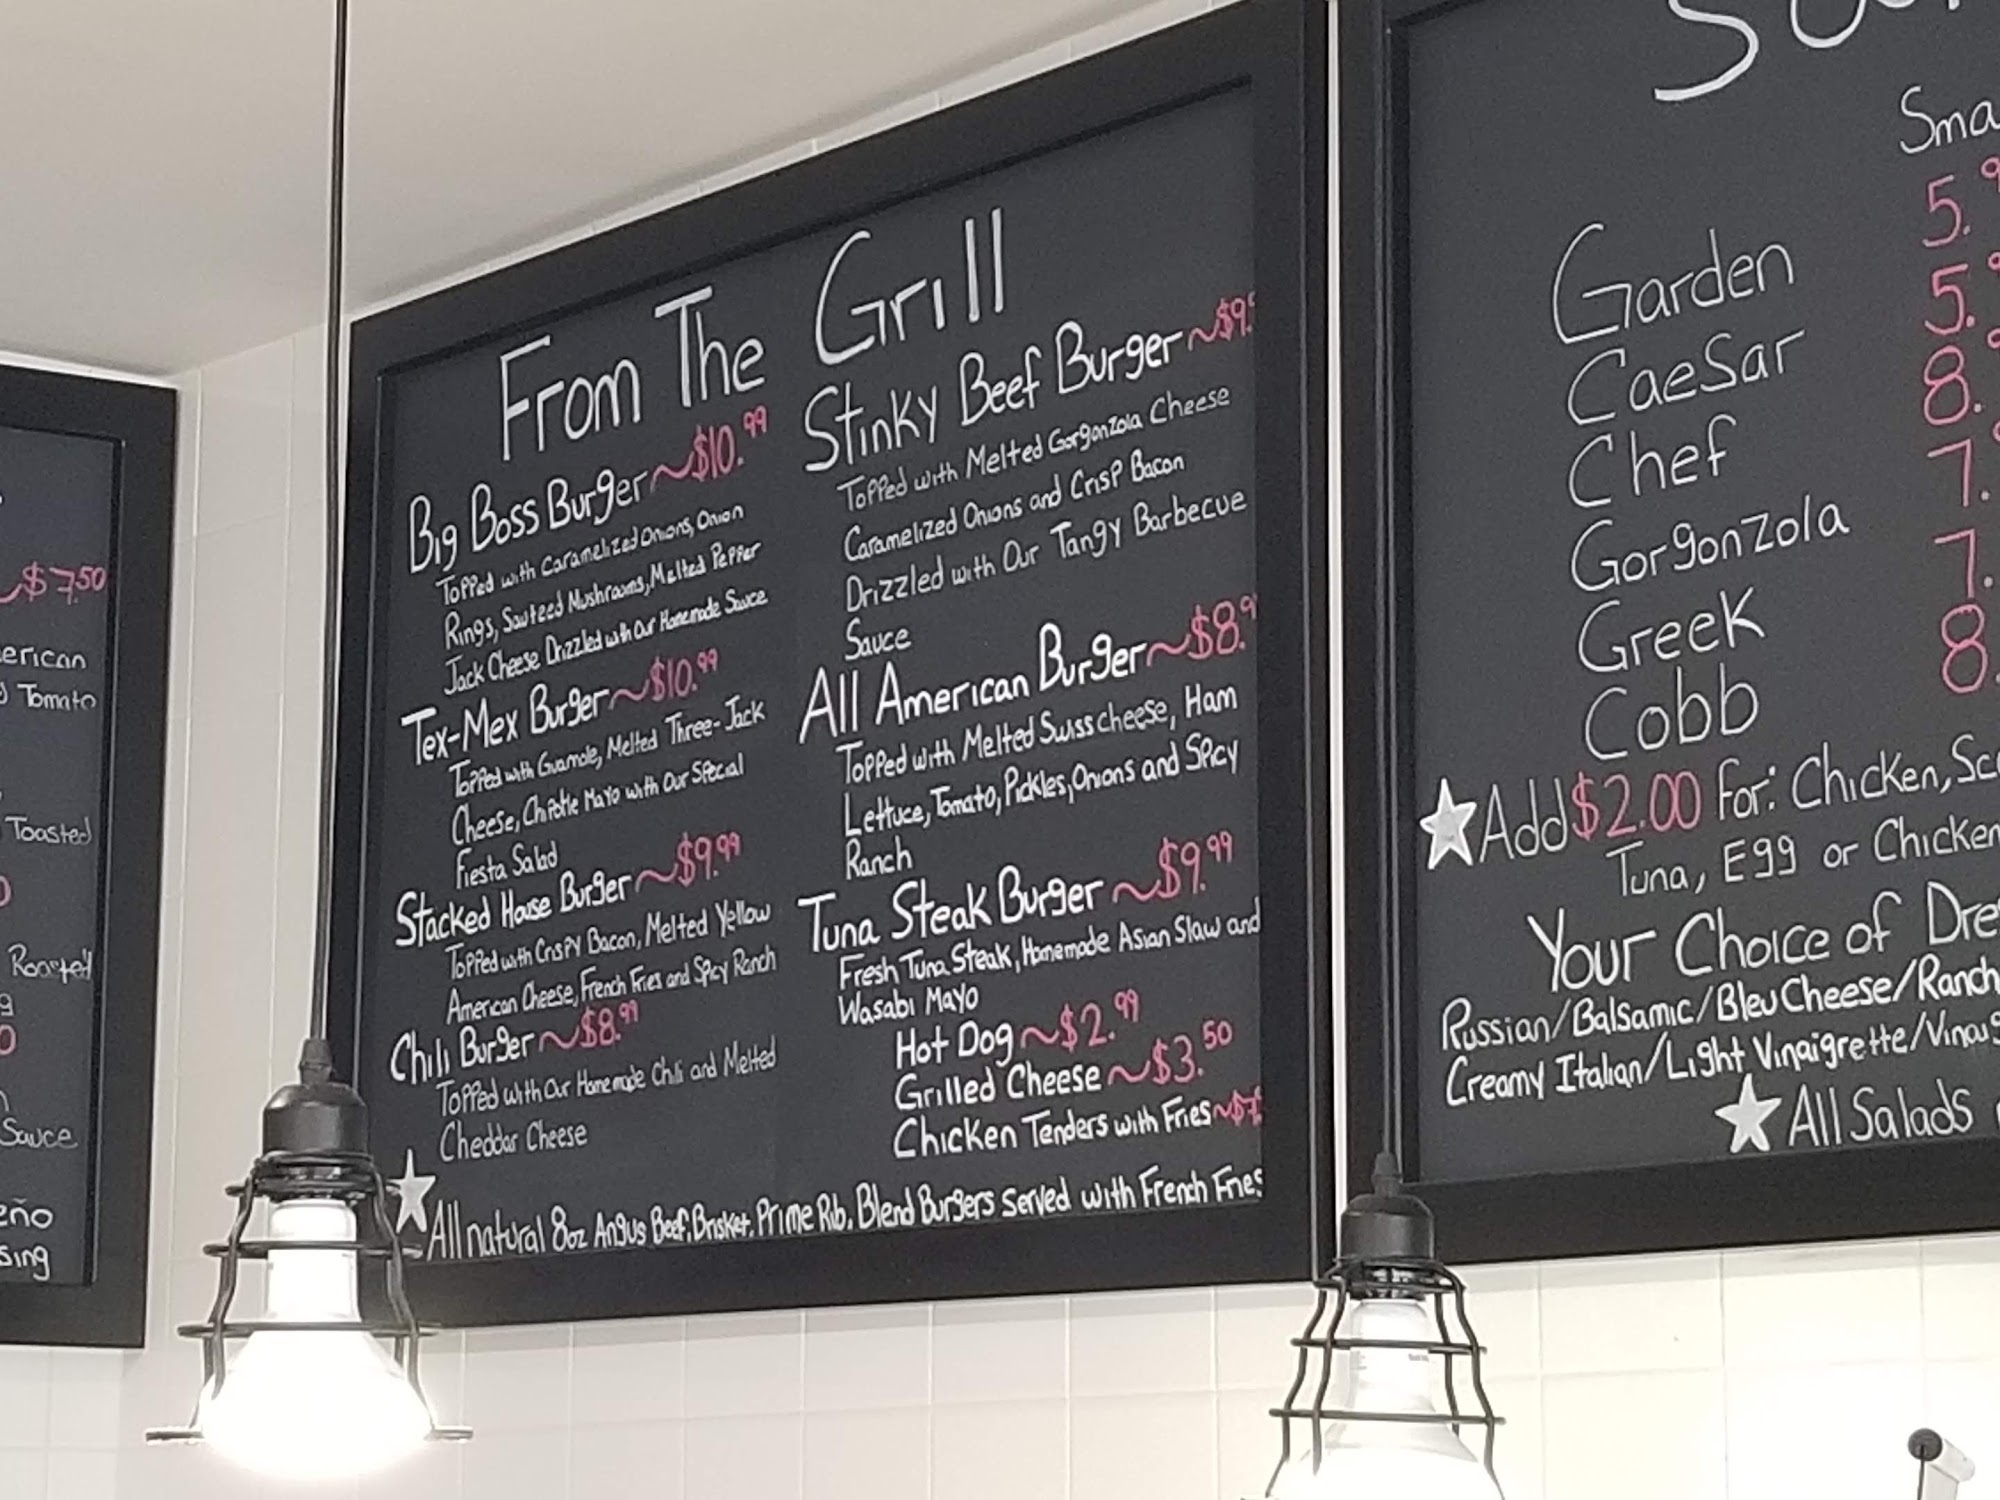 $7.50
erican
Tomato
Toasted
Roasted
g
Sauce
eño
sing
From The Grill
Big Boss Burger ~ $10.99
Topped with Caramelized Onions, Onion
Rings, Sauteed Mushrooms, Melted Pepper
Jack Cheese Drizzled with Our Homemade Sauce
Tex-Mex Burger ~ $10.99
Topped with Guamole, Melted Three-Jack
Cheese, Chipotle Mayo with Our Special
Fiesta Salad
Stacked House Burger ~ $9.99
Topped with Crispy Bacon, Melted Yellow
American Cheese, French Fries and Spicy Ranch
Chili Burger ~ $8.99
Topped with Our Homemade Chili and Melted
Cheddar Cheese
Stinky Beef Burger ~ $9.
Topped with Melted Gorgonzola Cheese
Caramelized Onions and Crisp Bacon
Drizzled with Our Tangy Barbecue
Sauce
All American Burger ~ $8.9
Topped with Melted Swiss cheese, Ham
Lettuce, Tomato, Pickles, Onions and Spicy
Ranch
Tuna Steak Burger ~ $9.99
Fresh Tuna Steak, Homemade Asian Slaw and
Wasabi Mayo
Hot Dog ~ $2.99
Grilled Cheese ~ $3.50
Chicken Tenders with Fries ~ $7.
All natural 8oz Angus Beef, Brisket, Prime Rib, Blend Burgers Served with French Fries
Sma
Garden 5.9
Caesar 5.
Chef 8.
Gorgonzola 7.
Greek 7.
Cobb 8.
Add $2.00 For: Chicken, Sc
Tuna, Egg or Chicken
Your Choice of Dre
Russian/Balsamic/Bleu Cheese/Ranch
Creamy Italian/Light Vinaigrette/Vinaig
All Salads